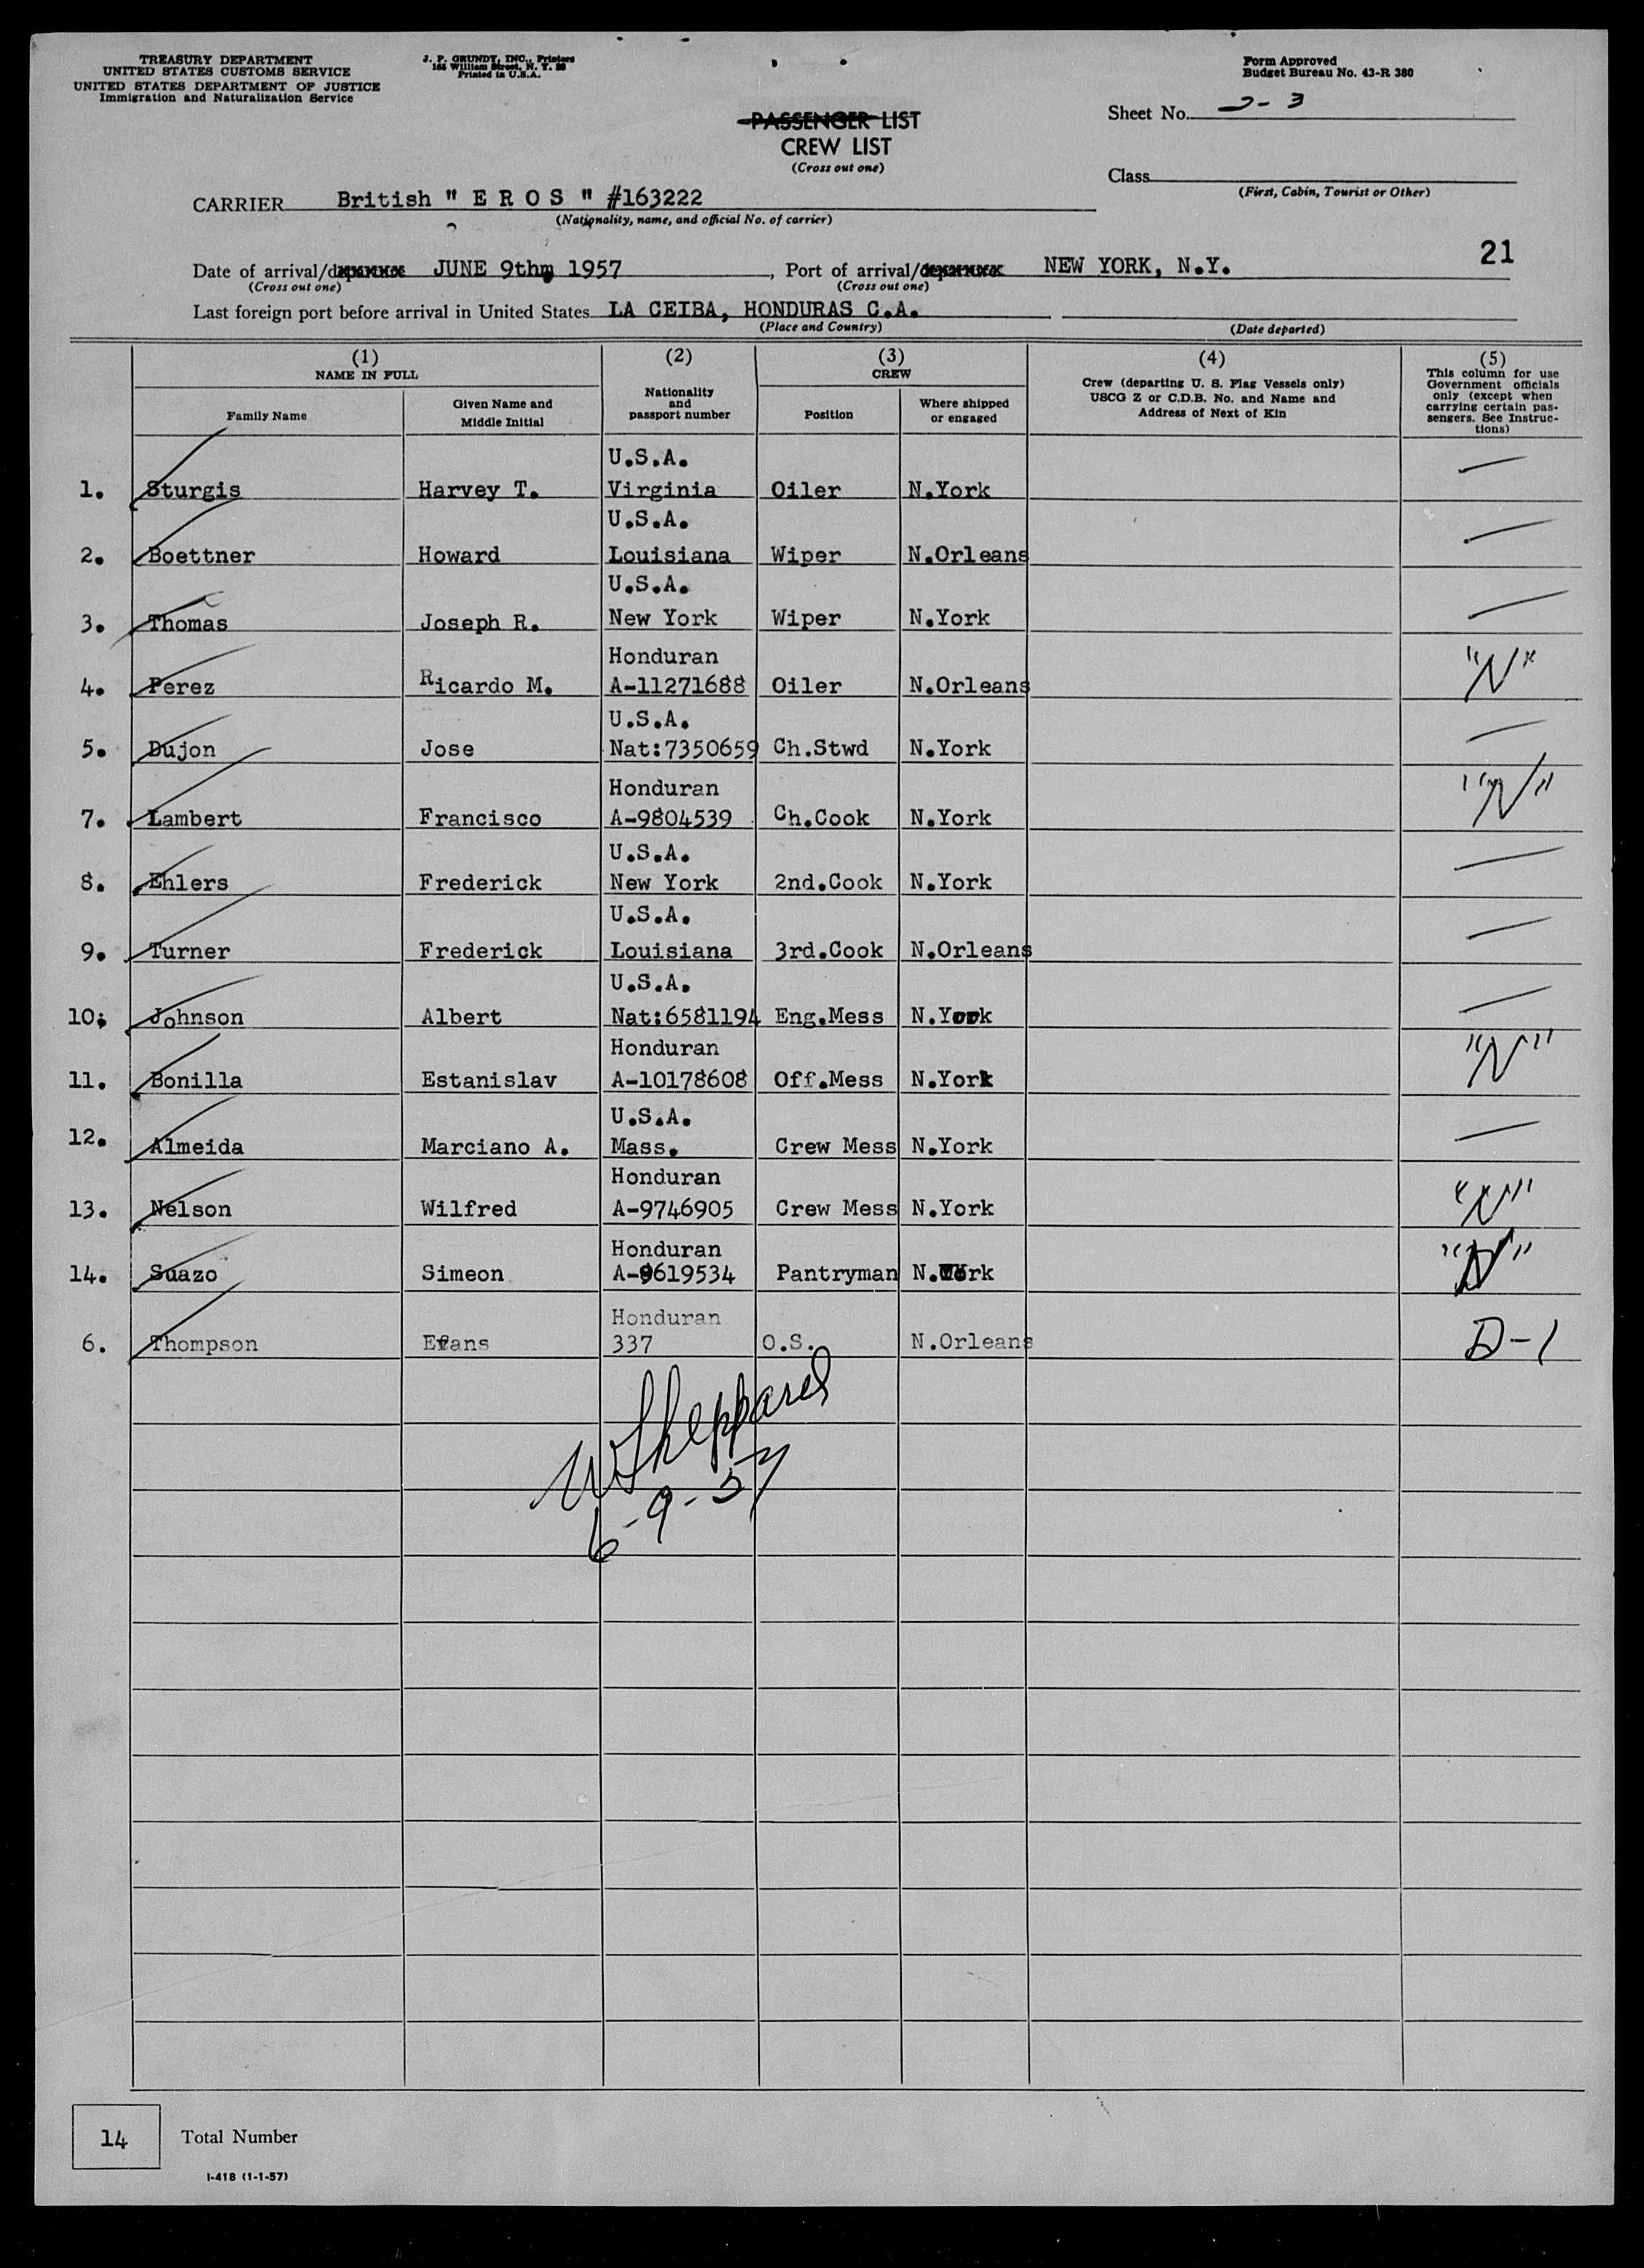 TREASURY DEPARTMENT
UNITED STATES CUSTOMS SERVICE
UNITED STATES DEPARTMENT OF JUSTICE
Immigration and Naturalization Service
J. P. GRUNDY, INC., Printers
165 William Street, N. Y. 38
Printed in U.S.A.
Form Approved
Budget Bureau No. 43-R 380
Sheet No. 2-3
PASSENGER LIST
CREW LIST
(Cross out one)
Class
(First, Cabin, Tourist or Other)
CARRIER British " E R O S " #163222
(Nationality, name, and official No. of carrier)
21
Date of arrival/ JUNE 9th, 1957, Port of arrival/ NEW YORK, N.Y.
(Cross out one) (Cross out one)
Last foreign port before arrival in United States LA CEIBA, HONDURAS C.A.
(Place and Country) (Date departed)
(1) NAME IN FULL
Family Name
Given Name and Middle Initial
(2) Nationality and passport number
(3) CREW
Position
Where shipped or engaged
(4) Crew (departing U. S. Flag Vessels only) USCG Z or C.D.B. No. and Name and Address of Next of Kin
(5) This column for use Government officials only (except when carrying certain passengers. See Instructions)
U.S.A.
1. Sturgis Harvey T. Virginia Oiler N.York —
U.S.A.
2. Boettner Howard Louisiana Wiper N.Orleans —
U.S.A.
3. Thomas Joseph R. New York Wiper N.York —
Honduran
4. Perez Ricardo M. A-11271688 Oiler N.Orleans "N"
U.S.A.
5. Dujon Jose Nat:7350659 Ch.Stwd N.York —
Honduran
7. Lambert Francisco A-9804539 Ch.Cook N.York "N"
U.S.A.
8. Ehlers Frederick New York 2nd.Cook N.York —
U.S.A.
9. Turner Frederick Louisiana 3rd.Cook N.Orleans —
U.S.A.
10; Johnson Albert Nat:6581194 Eng.Mess N.York —
Honduran
11. Bonilla Estanislav A-10178608 Off.Mess N.York "N"
U.S.A.
12. Almeida Marciano A. Mass. Crew Mess N.York —
Honduran
13. Nelson Wilfred A-9746905 Crew Mess N.York "N"
Honduran
14. Suazo Simeon A-9619534 Pantryman N.York "N"
Honduran
6. Thompson Evans 337 O.S. N.Orleans D-1
W Sheppard
6-9-57
14 Total Number
I-418 (1-1-57)